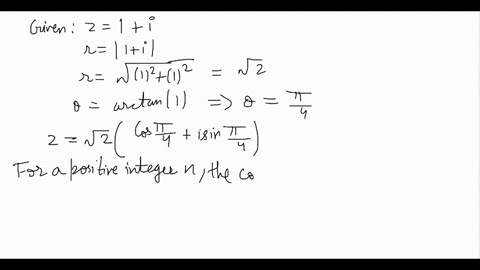 Given: z = 1 + i
r = |1+i|
r = √((1)²+(1)²) = √2
θ = arctan(1) => θ = π/4
z = √2 (cos π/4 + i sin π/4)
For a positive integer n, the co